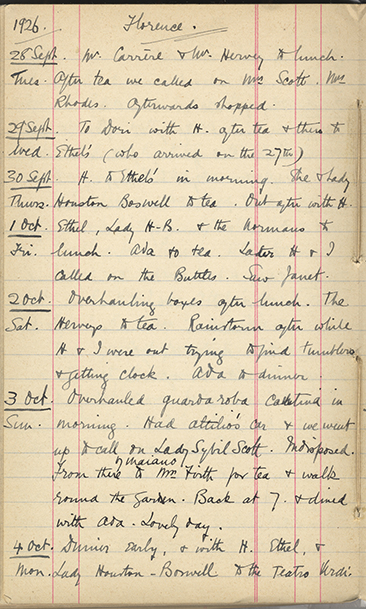 1926. Florence.
28 Sept. Mr. Carrère & Mr. Hervey to lunch.
Tues. After tea we called on Mrs Scott. Mrs
Rhodes. Afterwards shopped.
29 Sept. To Dori with H. after tea & then to
Wed. Ethel's (who arrived on the 27th)
30 Sept. H. to Ethel's in morning. The & Lady
Thurs. Houston Boswell to tea. Out after with H.
1 Oct. Ethel, Lady H-B. & the Normans to
Fri. lunch. Ada to tea. Later H & I
called on the Buttles. Saw Janet.
2 Oct. Overhauling boxes after lunch. The
Sat. Herveys to tea. Rainstorm after while
H & I were out trying to find tumblers
& getting clock. Ada to dinner
3 Oct. Overhauled guardaroba in
Sun. morning. Had Attilio's car & we went
up to call on Lady Sybil Scott. Indisposed.
From there to Maiano Mrs Forth for tea & walk
round the Garden. Back at 7. & dined
with Ada. Lovely day.
4 Oct. Dinner early, & with H. Ethel, &
Mon. Lady Houston-Boswell to the Teatro Verdi.